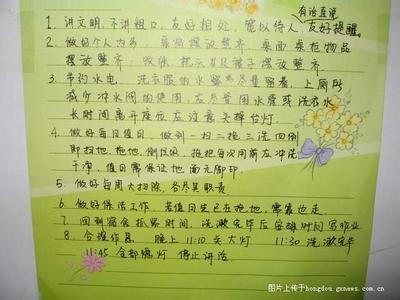 有话直说
1. 讲文明,不讲粗口,友好相处,宽以待人,友好提醒。
2. 做好个人内务,桌椅摆放整齐,桌面桌柜物品
摆放整齐,
3. 节约水电,洗衣服的水
减少冲水阀的使用,尽量用水或洗衣水
长时间离开座位应注意关掉台灯
4. 做好每日值日,做到一扫二拖三洗四倒
即扫地,拖地,倒垃圾,拖把每次用前应冲洗
干净,值日需保证地面无脚印.
5. 做好每周大扫除,各尽其职责
6. 做好保洁工作,若值日生已在拖地,需靠边走
7. 回到宿舍抓紧时间,洗漱完毕后安排时间写作业
8. 合理作息 晚上 11:10 关大灯 11:30 洗漱完毕
11:45 全部熄灯 停止讲话
图片上传于hongdou.gxnews.com.cn